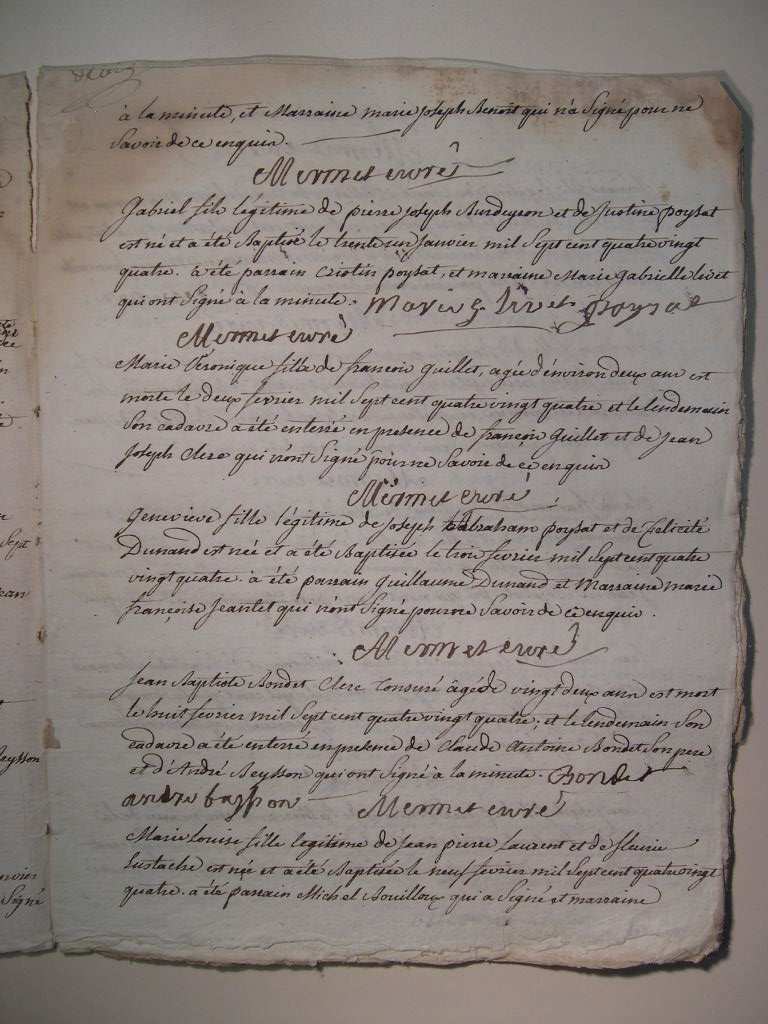 à la minute, et Marraine marie joseph Benoit qui n'a Signé pour ne
Savoir de ce enquis.
Mermet curé
Gabriel fils légitime de pierre joseph Burdeyron et de Justine poysat
est né et a été Baptisé le trente un janvier mil Sept cent quatre vingt
quatre. à été parrain poysat, et marraine Marie gabrielle livet
qui ont Signé à la minute. Marie g livet poysat
Mermet curé
Marie Véronique fille de francois guillet, agée d'environ deux ans est
morte le deux fevrier mil Sept cent quatre vingt quatre et le lendemain
Son cadavre a été enterré en presence de françois guillet et de jean
Joseph Clerc qui n'ont Signé pour ne Savoir de ce enquis
Mermet curé
Genevieve fille légitime de joseph abraham poysat et de felicité
Dunand est née et a été Baptisée le trois fevrier mil Sept cent quatre
vingt quatre. à été parrain guillaume Dunand et Marraine marie
françoise jeantet qui n'ont Signé pour ne Savoir de ce enquis.
Mermet curé
Jean Baptiste Bondet Clerc tonsuré âgé de vingt deux ans est mort
le huit fevrier mil Sept cent quatre vingt quatre, et le lendemain Son
cadavre a été enterré en presence de Claude Antoine Bondet Son pere
et d'André Beysson qui ont Signé à la minute. Bondet
andre
Mermet curé
Marie Louise fille legitime de jean pierre Laurent et de fleurie
Eustache est née et a été Baptisée le neuf fevrier mil Sept cent quatre vingt
quatre. a été parrain Michel Bouilloux qui a Signé et marraine